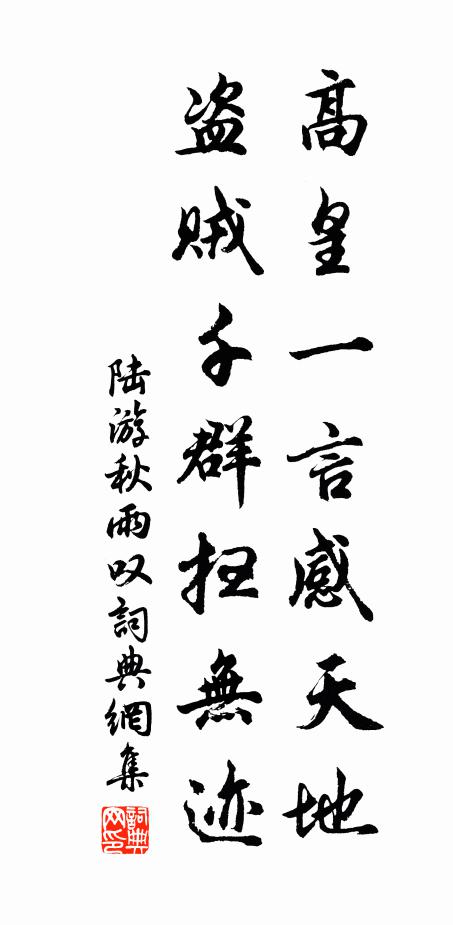 高皇一言感天地
盗贼千群扫無迹
陆游秋雨叹詞典網集
詞典网印